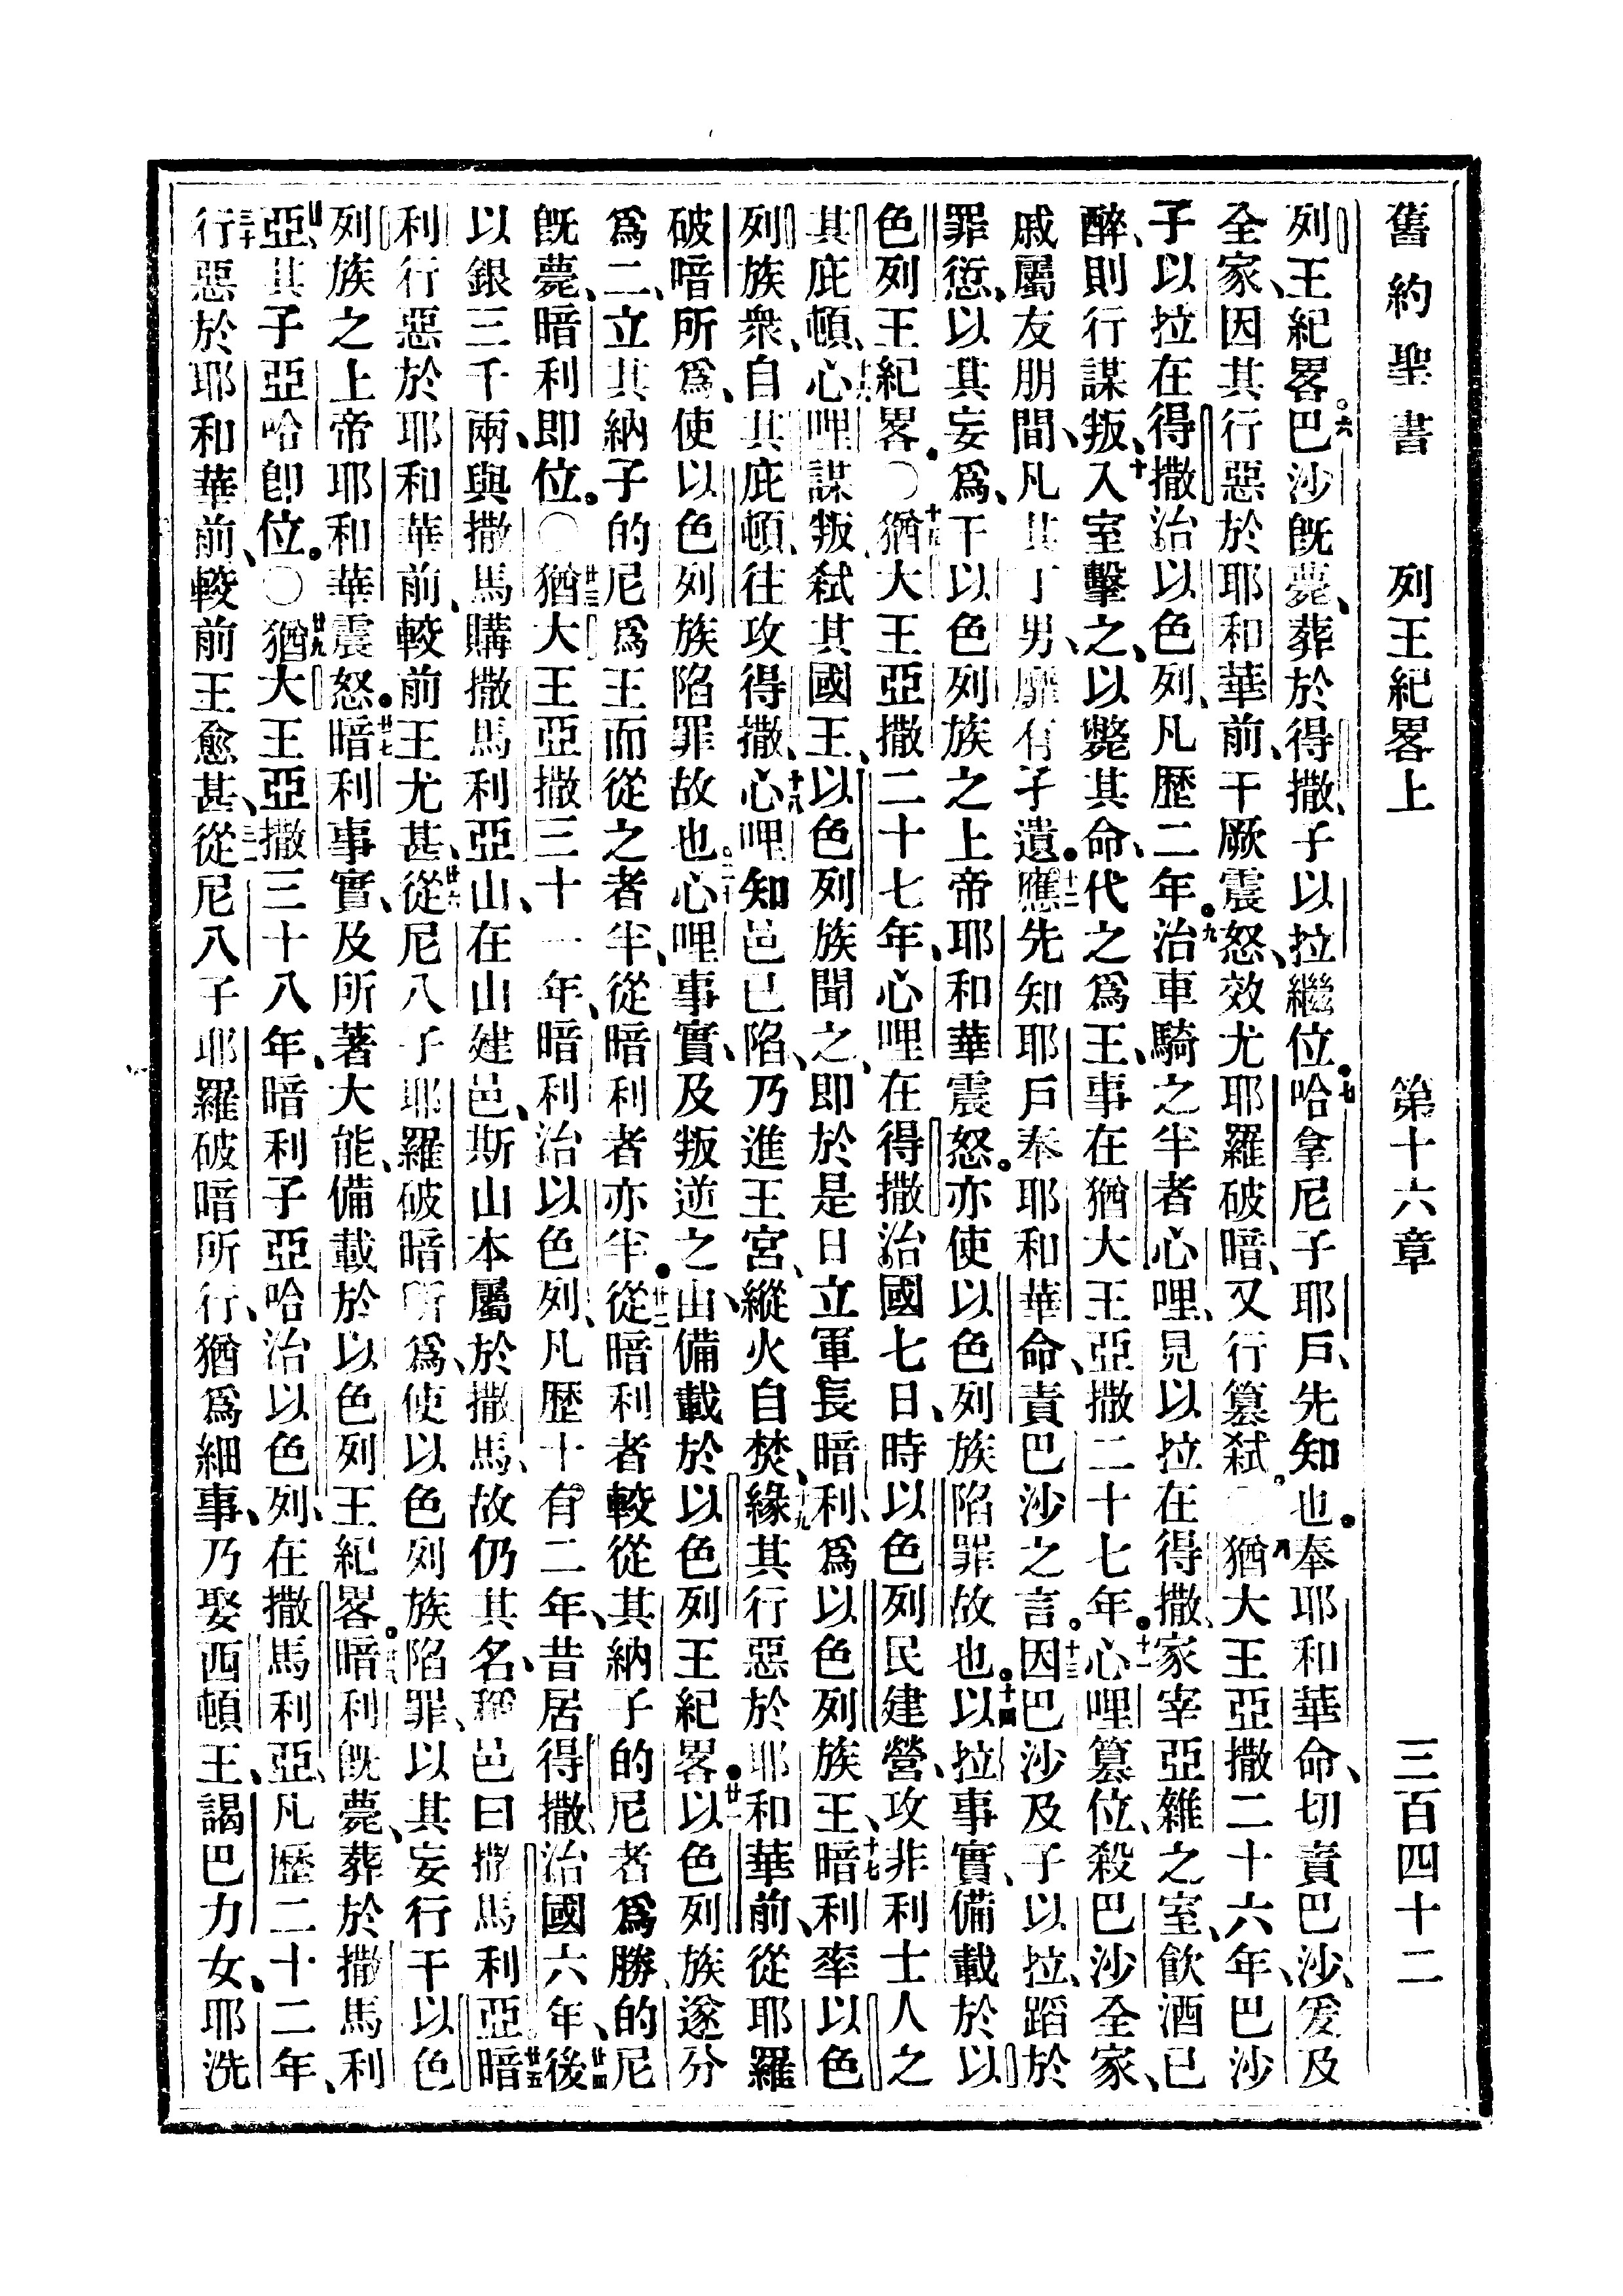 舊約聖書　列王紀畧上　第十六章　三百四十二
列王紀畧。六巴沙旣薨、葬於得撒、子以拉繼位。七哈拿尼子耶戶、先知也。奉耶和華命、切責巴沙、爰及
全家、因其行惡於耶和華前、干厥震怒、效尤耶羅破暗、又行篡弒。〇八猶大王亞撒二十六年、巴沙
子以拉在得撒治以色列、凡歷二年。九治車騎之半者心哩、見以拉在得撒、家宰亞雜之室、飲酒已
醉、則行謀叛、十入室擊之、以斃其命、代之爲王、事在猶大王亞撒二十七年。十一心哩篡位、殺巴沙全家、
戚屬友朋間、凡其丁男、靡有孑遺。十二應先知耶戶奉耶和華命、責巴沙之言。十三因巴沙及子以拉、蹈於
罪愆、以其妄爲、干以色列族之上帝耶和華震怒。亦使以色列族陷罪故也。十四以拉事實、備載於以
色列王紀畧。〇十五猶大王亞撒二十七年、心哩在得撒治國七日、時以色列民建營、攻非利士人之
其庇頓、十六心哩謀叛、弒其國王、以色列族聞之、卽於是日立軍長暗利、爲以色列族王、十七暗利率以色
列族衆、自其庇頓往攻得撒、十八心哩知邑已陷、乃進王宮、縱火自焚、十九緣其行惡於耶和華前、從耶羅
破暗所爲、使以色列族陷罪故也。二十心哩事實、及叛逆之由、備載於以色列王紀畧。廿一以色列族遂分
爲二、立其納子的尼爲王而從之者半、從暗利者亦半。廿二從暗利者較從其納子的尼者爲勝、的尼
旣薨、暗利卽位。〇廿三猶大王亞撒三十一年、暗利治以色列、凡歷十有二年、昔居得撒、治國六年、廿四後
以銀三千兩、與撒馬購撒馬利亞山、在山建邑、斯山本屬於撒馬、故仍其名、稱邑曰撒馬利亞。廿五暗
利行惡於耶和華前、較前王尤甚、廿六從尼八子耶羅破暗所爲、使以色列族陷罪、以其妄行干以色
列族之上帝耶和華震怒。廿七暗利事實、及所著大能、備載於以色列王紀畧。廿八暗利旣薨、葬於撒馬利
亞、其子亞哈卽位。〇廿九猶大王亞撒三十八年、暗利子亞哈治以色列、在撒馬利亞、凡歷二十二年、
三十行惡於耶和華前、較前王愈甚、三一從尼八子耶羅破暗所行、猶爲細事、乃娶西頓王、謁巴力女、耶洗